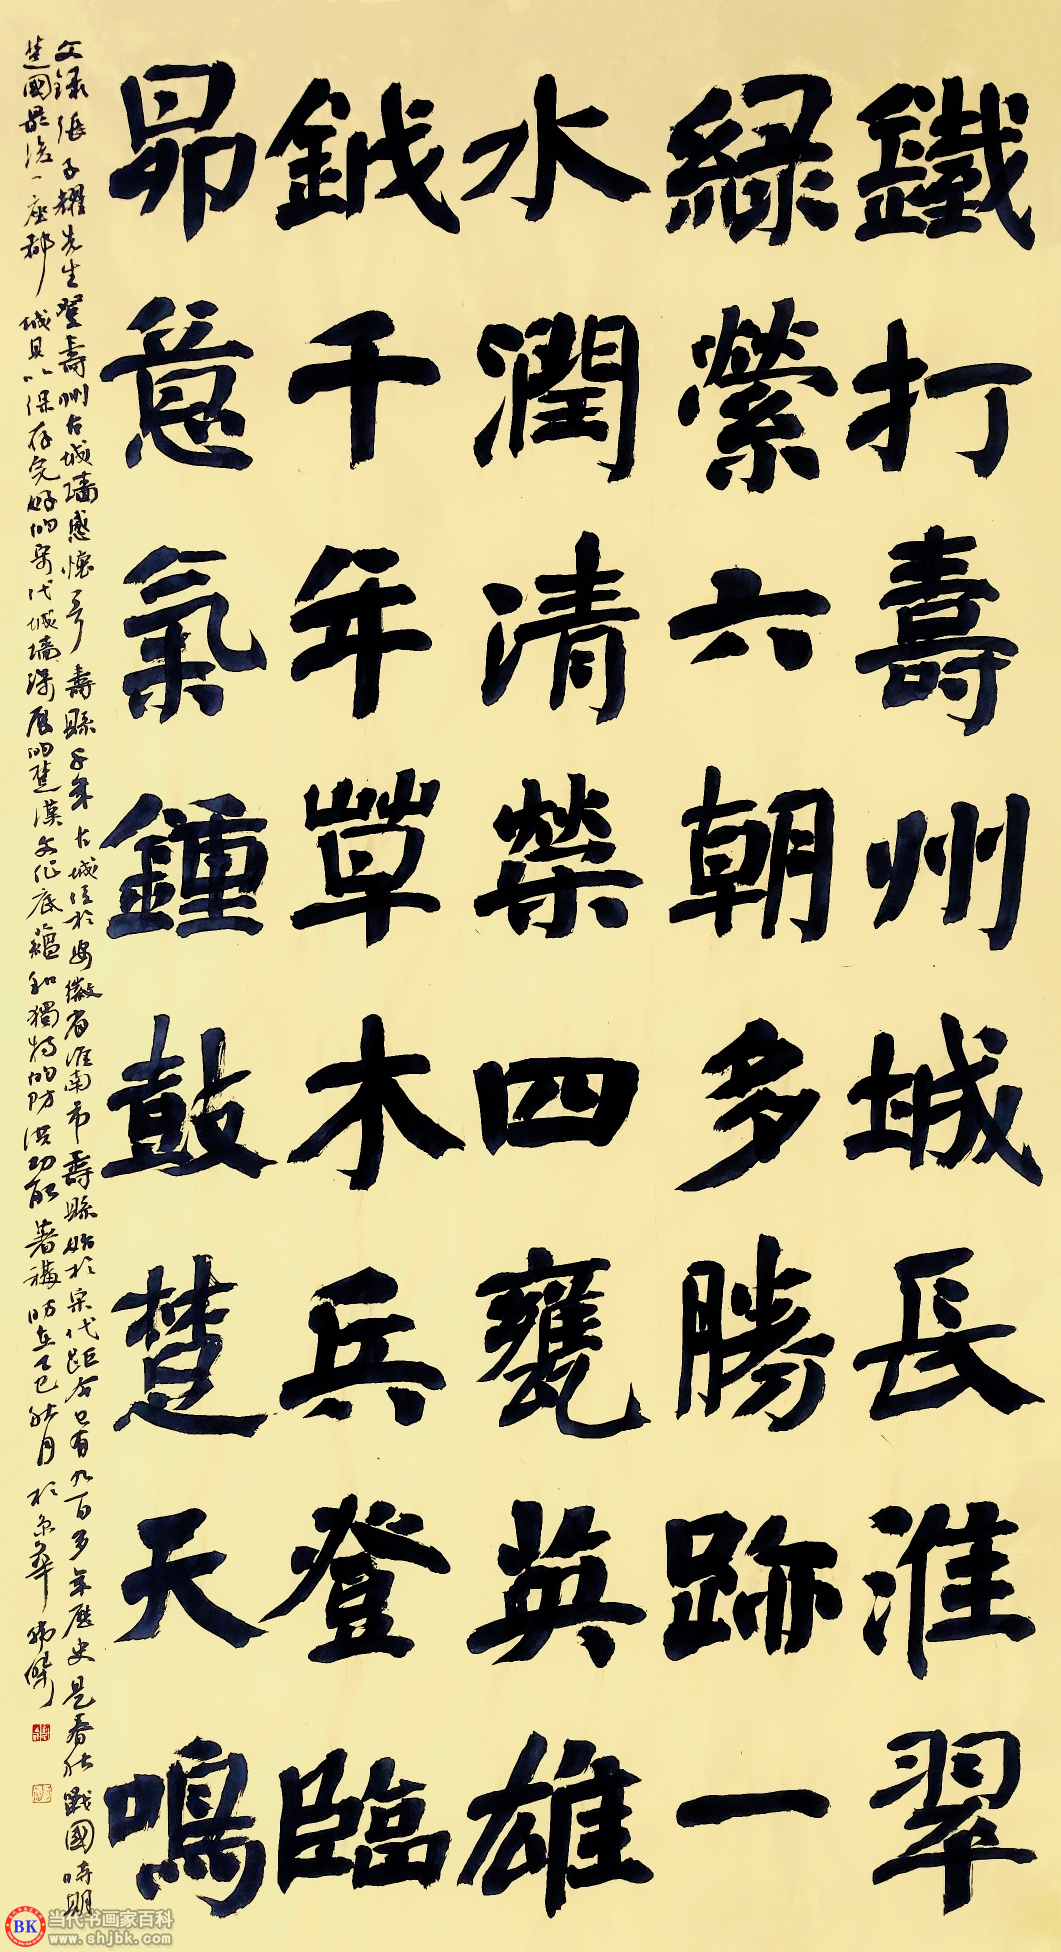 鐵打壽州城長淮翠
綠縈六朝多勝跡一
水潤清榮四甕英雄
鉞千年草木兵登臨
昴意氣鍾鼓楚天鳴
文錄張子耀先生登壽州古城墻感懷 壽縣千年古城位於安徽省淮南市壽縣始於宋代距今已有九百多年歷史是春秋戰國時期
楚國最後一座都城且以保存完好的宋代城墻深厚的楚漢文化底蘊和獨特的防洪功能著稱 乙巳秋月於京華
当代书画家百科
www.shjbk.com
BK